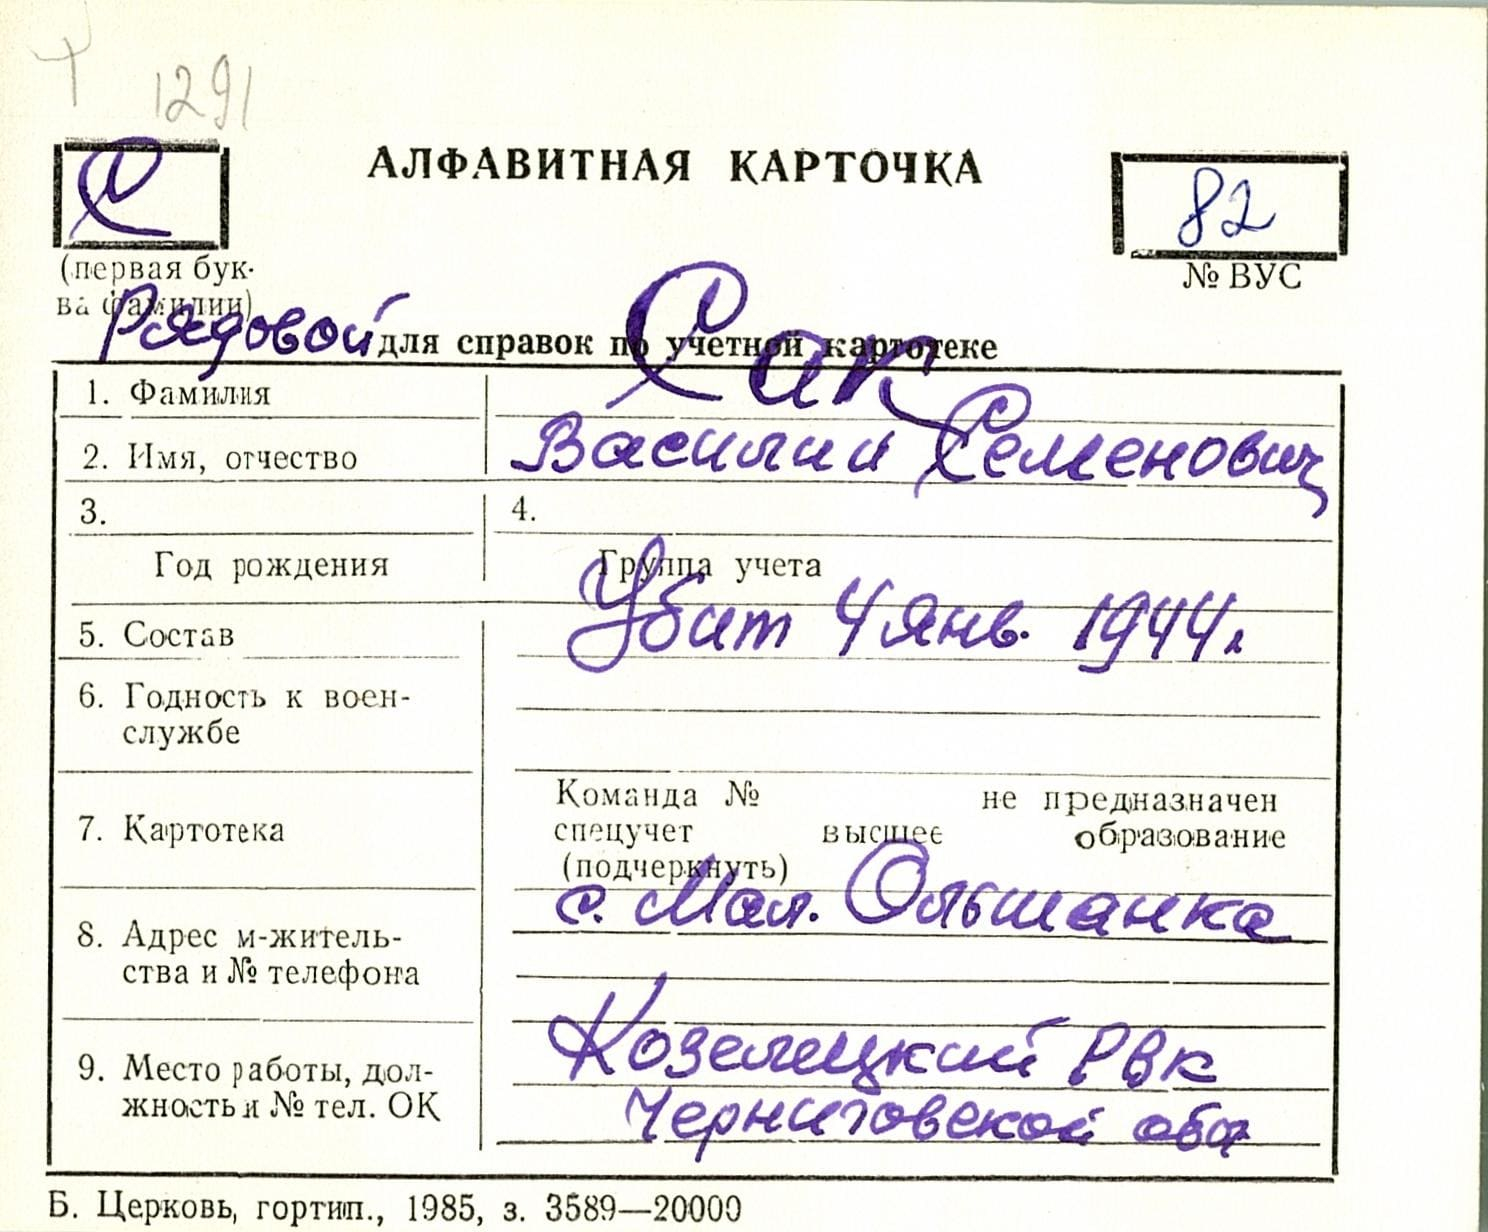 1291
С
АЛФАВИТНАЯ КАРТОЧКА
82
(первая бук-
ва фамилии)
№ ВУС
Рядовой
для справок по учетной картотеке
1. Фамилия
Сак
2. Имя, отчество
Василий Семенович
3.
4.
Год рождения
Группа учета
Убит 4 янв. 1944 г
5. Состав
6. Годность к воен-
службе
Команда № не предназначен
7. Картотека
спецучет высшее образование
(подчеркнуть)
с. Мал. Ольшанка
8. Адрес м-житель-
ства и № телефона
Козелецкий РВК
9. Место работы, дол-
жность и № тел. ОК
Черниговской обл
Б. Церковь, гортип., 1985, з. 3589—20000